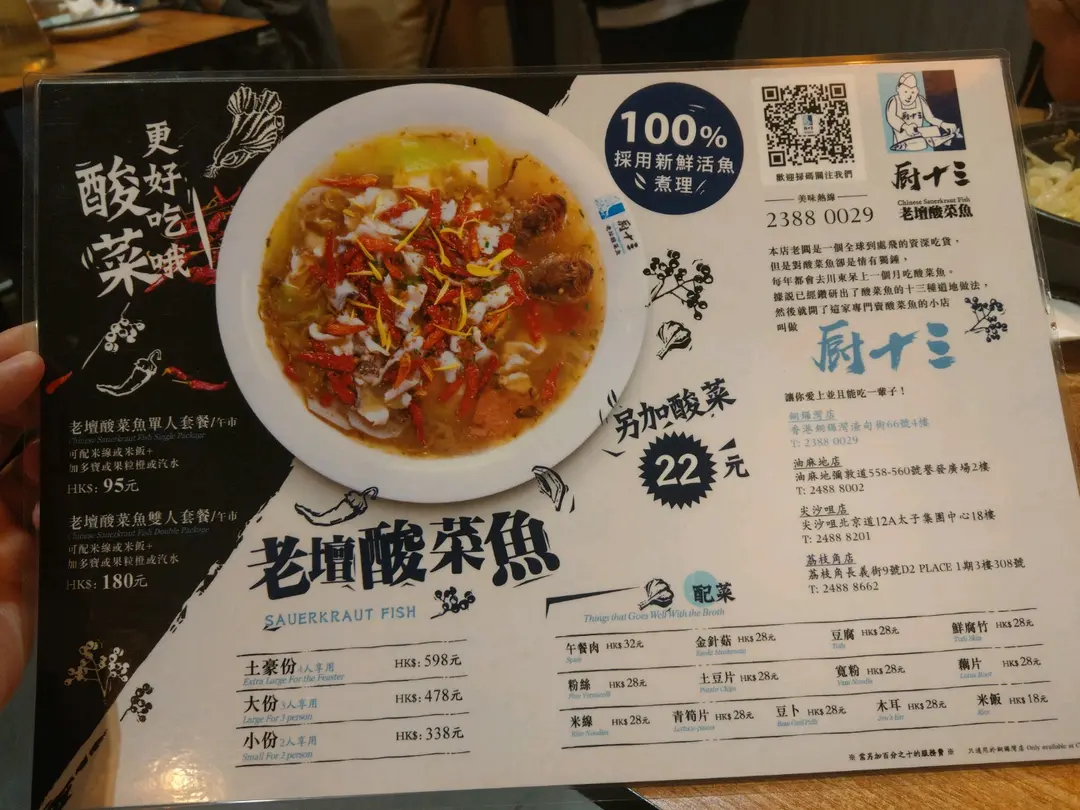 更好吃哦
酸菜
100%
採用新鮮活魚
煮理
歡迎掃碼關注我們
美味熱線
2388 0029
廚十三
Chinese Sauerkraut Fish
老壇酸菜魚
廚十三
本店老闆是一個全球到處飛的資深吃貨，
但是對酸菜魚卻是情有獨鍾，
每年都會去川東呆上一個月吃酸菜魚。
據說已經鑽研出了酸菜魚的十三種道地做法，
然後就開了這家專門賣酸菜魚的小店
叫做
廚十三
讓你愛上並且能吃一輩子！
銅鑼灣店
香港銅鑼灣渣甸街66號4樓
T: 2388 0029
油麻地店
油麻地彌敦道558-560號譽發廣場2樓
T: 2488 8002
尖沙咀店
尖沙咀北京道12A太子集團中心18樓
T: 2488 8201
荔枝角店
荔枝角長義街9號D2 PLACE 1期3樓308號
T: 2488 8662
另加酸菜
22元
老壇酸菜魚單人套餐/午市
Chinese Sauerkraut Fish Single Package
可配米線或米飯+
加多寶或果粒橙或汽水
HK$: 95元
老壇酸菜魚雙人套餐/午市
Chinese Sauerkraut Fish Double Package
可配米線或米飯+
加多寶或果粒橙或汽水
HK$: 180元
老壇酸菜魚
SAUERKRAUT FISH
土豪份 4人享用 HK$: 598元
Extra Large For the Feaster
大份 3人享用 HK$: 478元
Large For 3 person
小份 2人享用 HK$: 338元
Small For 2 person
配菜
Things that Goes Well With the Broth
午餐肉 HK$ 32元 金針菇 HK$ 28元 豆腐 HK$ 28元 鮮腐竹 HK$ 28元
Spam Enoki Mushroom Tofu Tofu Skin
粉絲 HK$ 28元 土豆片 HK$ 28元 寬粉 HK$ 28元 藕片 HK$ 28元
Pea Vermicelli Potato Chips Lotus Root
米線 HK$ 28元 青筍片 HK$ 28元 豆卜 HK$ 28元 木耳 HK$ 28元 米飯 HK$ 18元
Rice Noodles Bean Curd Puffs Jew's Ear Rice
※ 當另加百分之十的服務費 ※ 只適用於銅鑼灣店 Only available at